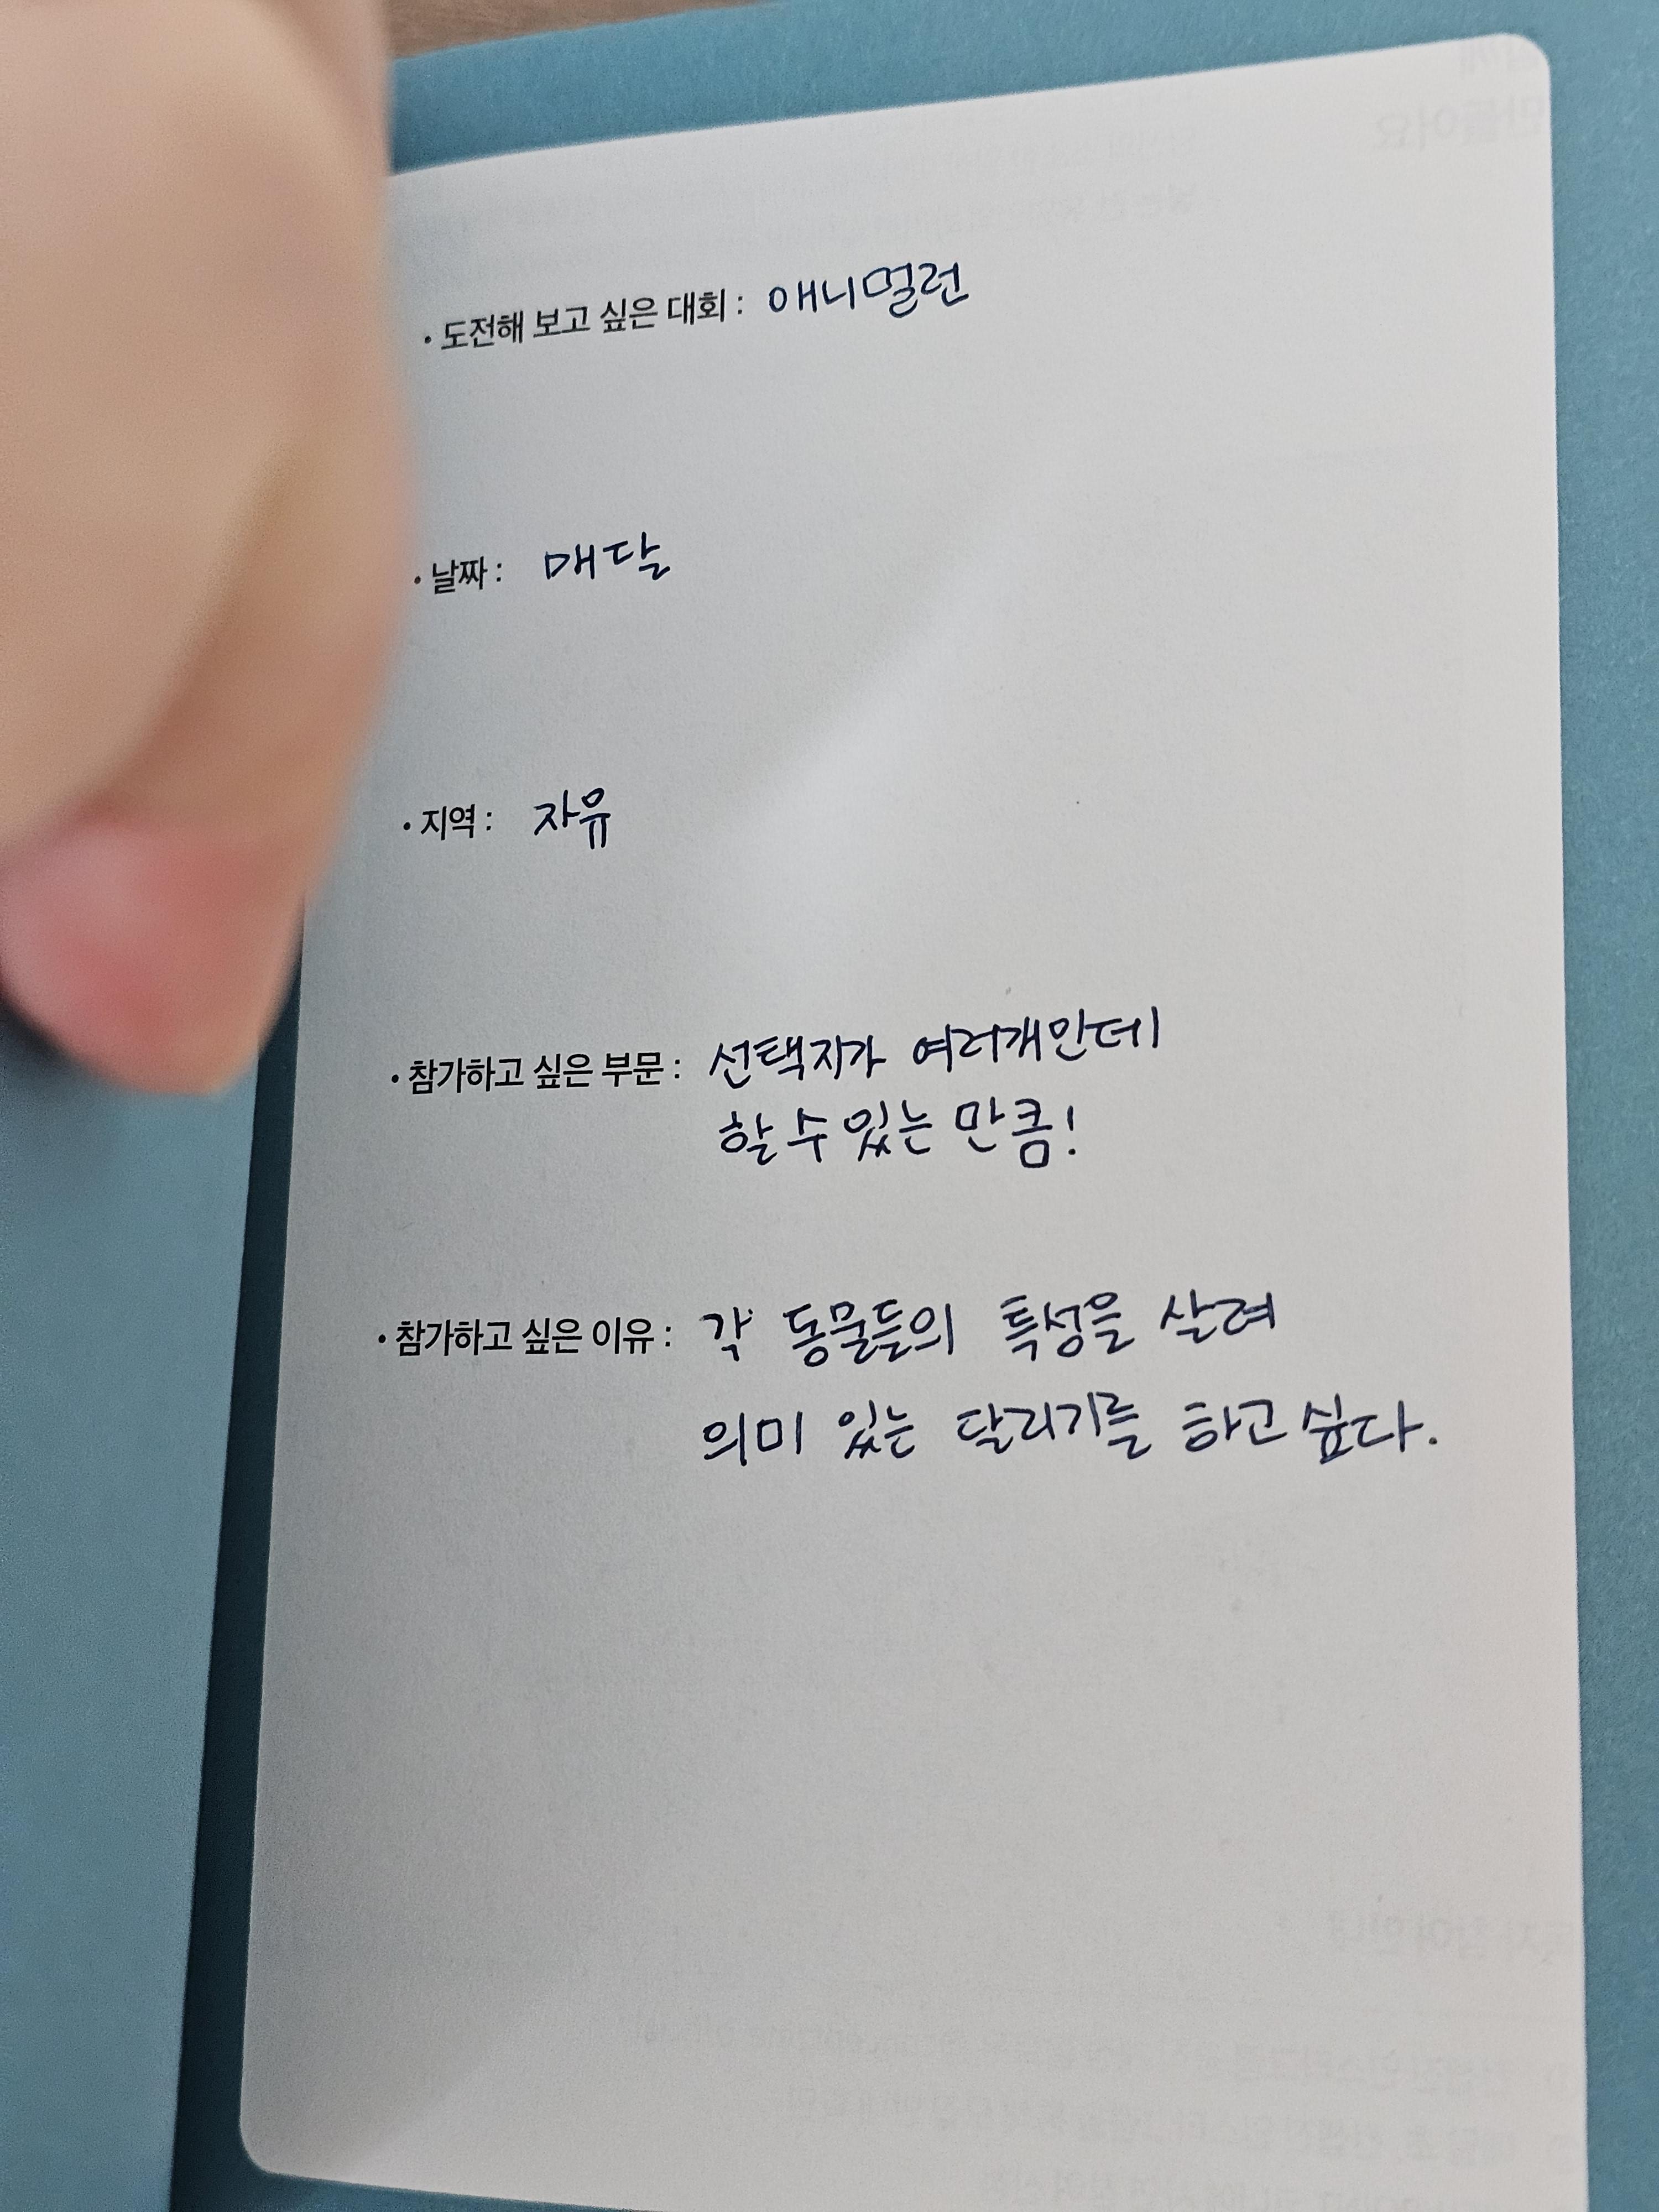 • 도전해 보고 싶은 대회 : 애니멀런
• 날짜 : 매달
• 지역 : 자유
• 참가하고 싶은 부문 : 선택지가 여러개인데
할 수 있는 만큼!
• 참가하고 싶은 이유 : 각 동물들의 특성을 살려
의미 있는 달리기를 하고 싶다.